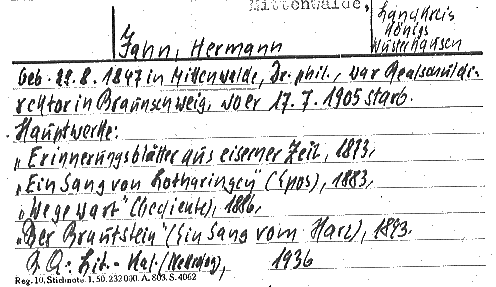 Mittenwalde,
Landkreis
Königs
Wusterhausen
Jahn, Hermann
Geb. 22.8.1847 in Mittenwalde, Dr. phil., war Realschuldi-
rektor in Braunschweig, wo er 17.7.1905 starb.
Hauptwerke:
„Erinnerungsblätter aus eiserner Zeit, 1893,
„Ein Sang von Lotharingen" (Epos), 1883,
„Wegewart" (Gedichte), 1886,
„Der Brautstein" (Ein Sang vom Harz), 1893.
Q: Lit.-Kal. 1936
Reg. 10. Stichnote. 1. 50. 232 000. A. 803. S. 4062